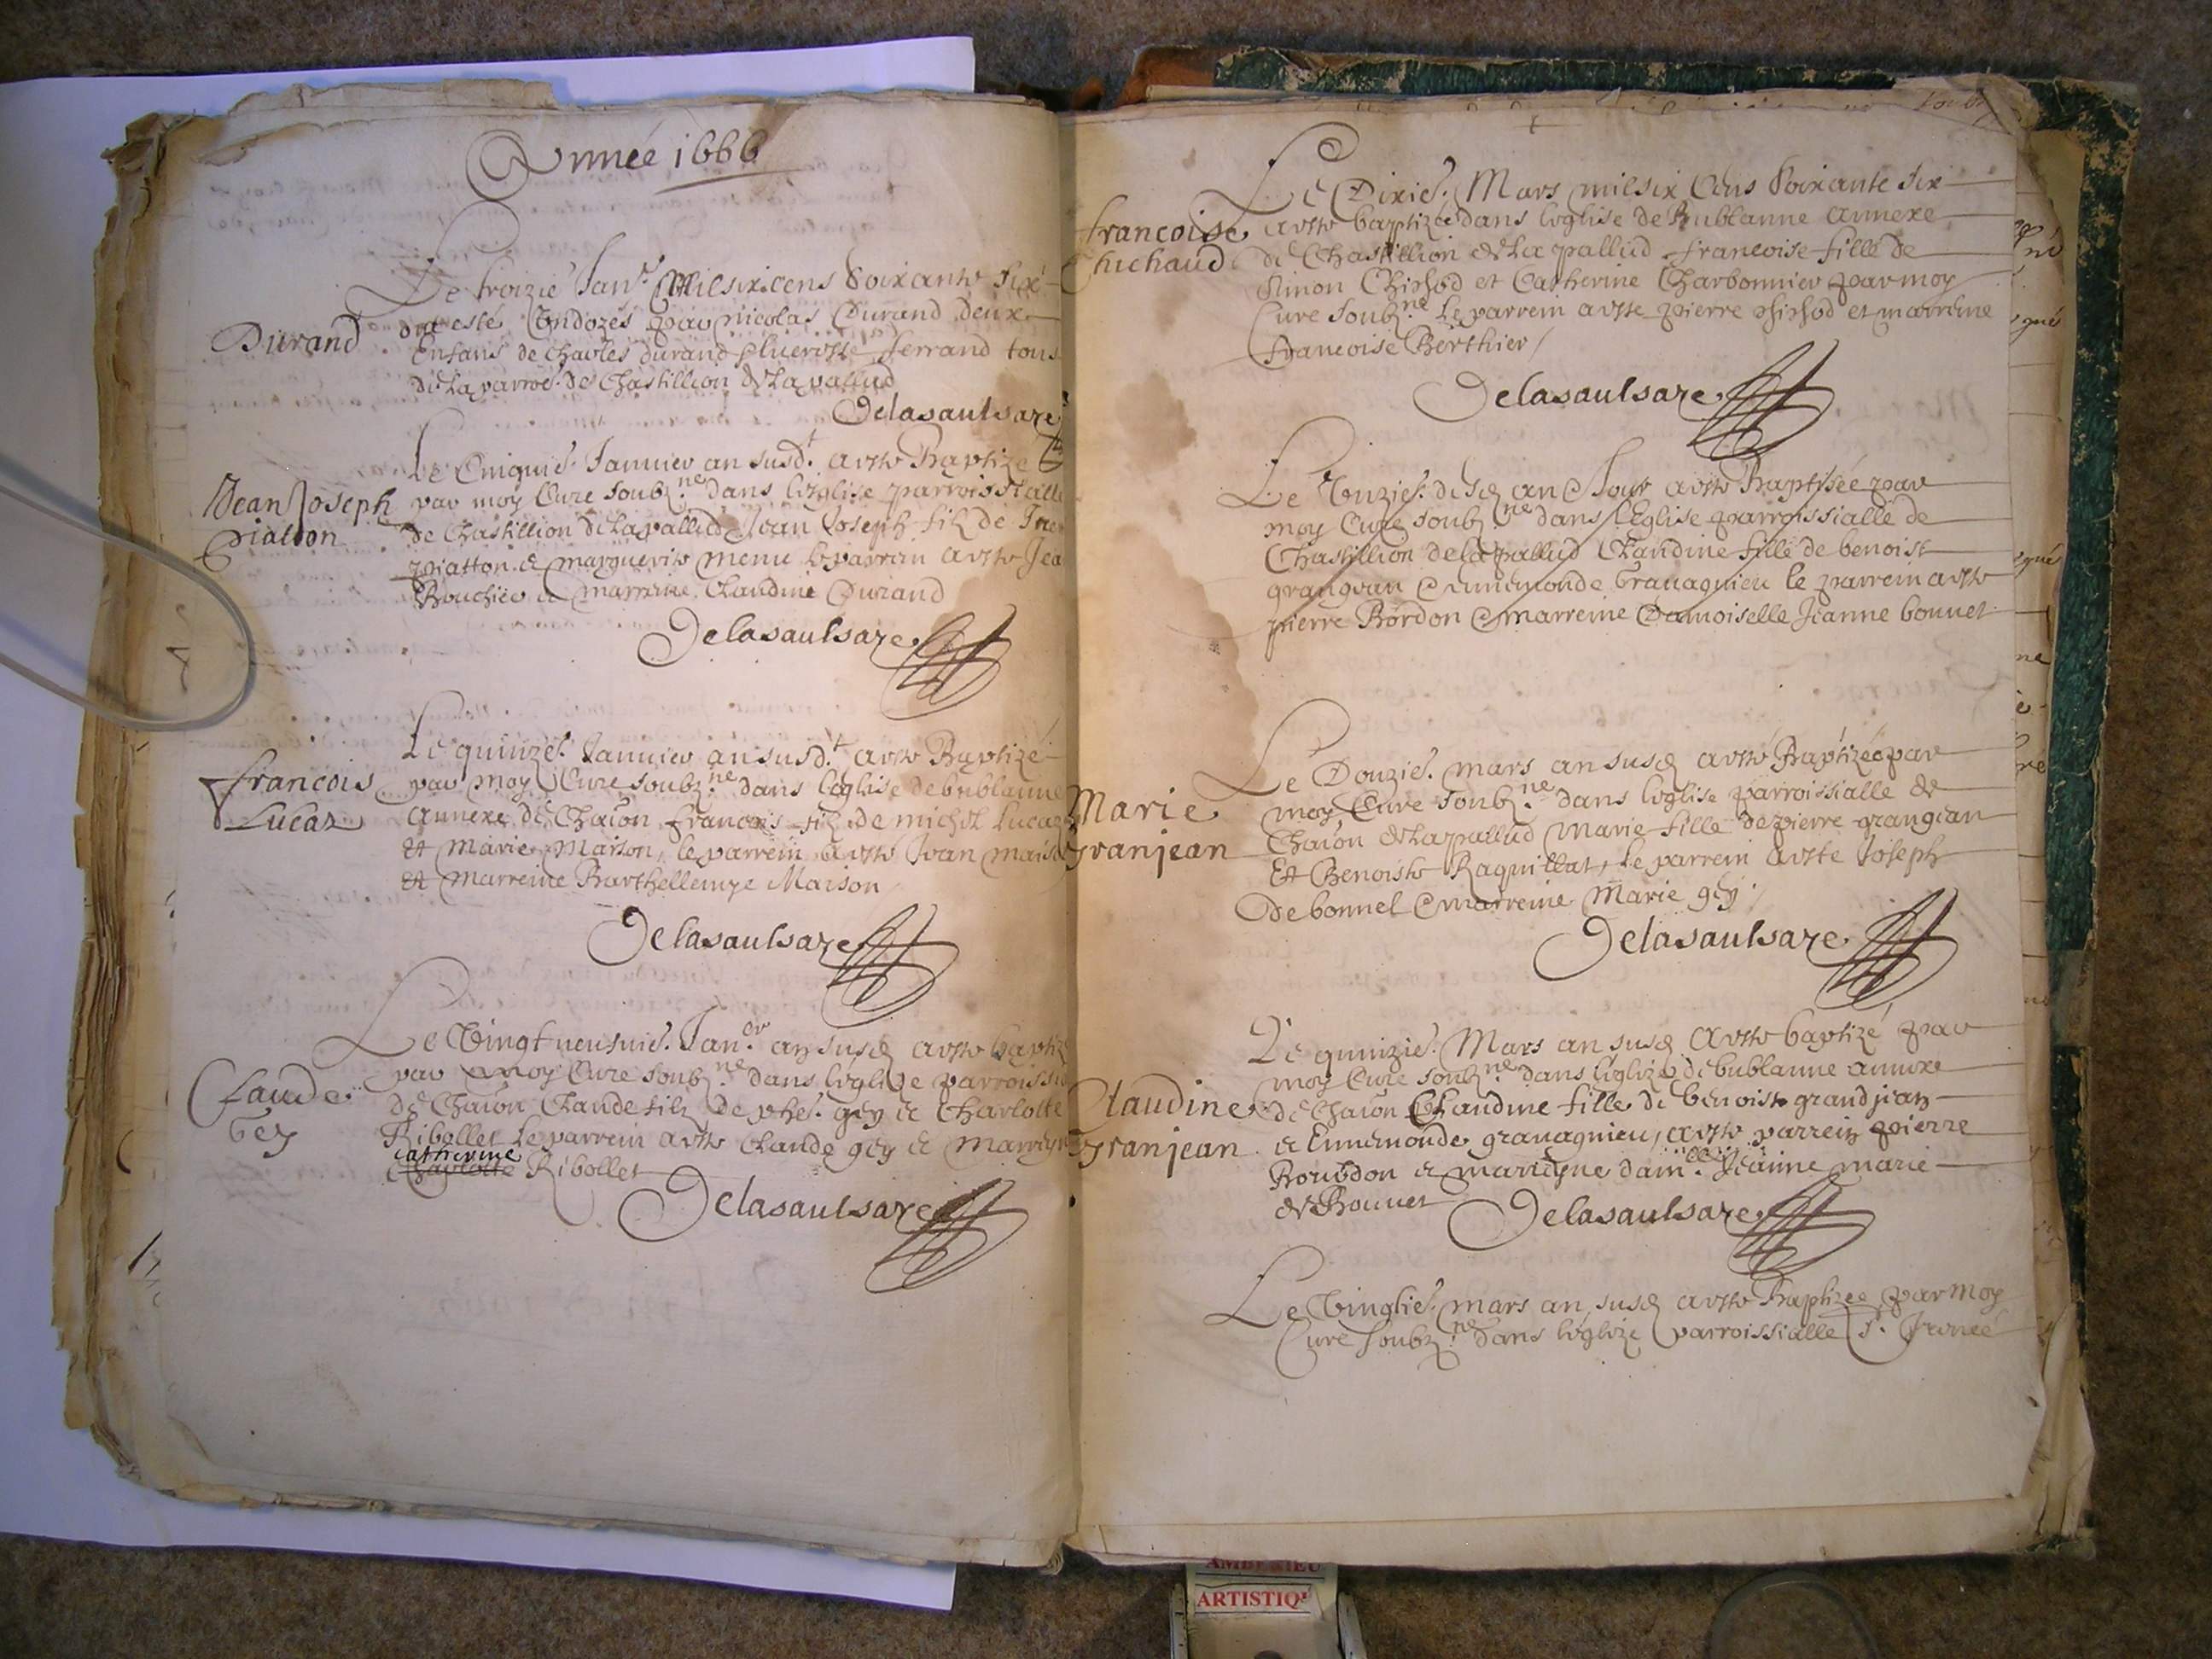 Année 1666
Durand
Le troizie Janr. Milsixcens Soixante Six
esté Ondozés par nicolas Durand deux
Enfans de charles durand ferrand tous
de la parroe. de Chastillion de la pallud
Delasaulsaye
Jean Joseph
piatton
Le Cinquie. Januier an susd.t a este Baptize
par moy Cure soubz.ne dans leglise parroissialle
de Chastillion de la pallud Jean Joseph filz de
piatton & marguerite menu le parrein a este Jea
Bouchier & marreine Claudine Durand
Delasaulsaye
francois
Lucaz
Le quinze. Januier an susd.t a este Baptizé
par moy Cure soubz.ne dans leglise de bublanne
annexe de Chaion francois filz de michel Lucaz
et marie Maison, le parrein a este Jean mais
et marreine Barthellemye Maison
Delasaulsaye
Claude
Gey
Le Vingt neufuie. Jan.er an susd a este baptiz
par moy Cure soubz.ne dans leglize parroissi
de Chaion Claude filz de phe. gey & Charlotte
Ribollet le parrein a este Claude gey & marreyn
catherine
Charlotte Ribollet
Delasaulsaye
francoise
Chichaud
Le Dixie. Mars mil six Cens Soixante six
a este baptizée dans leglise de Bublanne annexe
de Chastillion de la pallud francoise fille de
Simon Chichod et Catherine Charbonnier par moy
Cure soubz.ne Le parrein a este pierre chichod et marreine
francoise Berthier
Delasaulsaye
Le Unzie. dusd an & Jour a este Baptisée par
moy Cure soubz.ne dans l'Eglise parroissialle de
Chastillion de la pallud Claudine fille de benoist
grangean & ennemonde Grauagnieu le parrein a este
pierre Bordon & marreine Damoiselle Jeanne bonnet
Marie
Granjean
Le Douzie. mars an susd a este Baptizée par
moy Cure soubz.ne dans leglise parroissialle de
Chaion de la pallud Marie fille de pierre grangean
Et Benoiste Raquillat, Le parrein a este Joseph
De bonnel & marreine Marie gey
Delasaulsaye
Claudine
Granjean
Le quinzie. Mars an susd a este baptizé par
moy Cure soubz.ne dans leglize de bublanne annexe
de Chaion Claudine fille de benoist grandjean
& Ennemonde grauagnieu, a este parrein pierre
Bourdon & marreyne dam.lle Jeanne marie
de Bonnet
Delasaulsaye
Le Vingtie. mars an susd a este Baptizee par moy
Cure soubz.ne dans leglize parroissialle S.t Irenee
ARTISTIQ